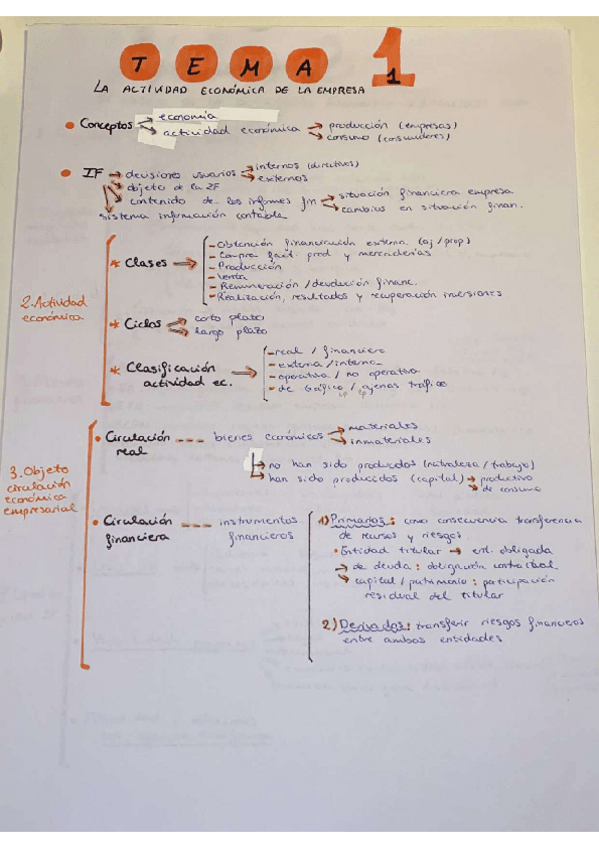 TEMA 1
LA ACTIVIDAD ECONÓMICA DE LA EMPRESA
• Conceptos → economía
→ actividad económica → producción (empresas)
→ consumo (consumidores)
• IF → decisiones usuarios → internos (directivos)
→ externos
→ objeto de la IF
→ contenido de los informes fin → situación financiera empresa
→ cambios en situación finan.
sistema información contable
2. Actividad económica
* Clases →
- Obtención financiación externa (aj/prop)
- Compra fact. prod y mercaderías
- Producción
- Venta
- Remuneración / devolución financ.
- Realización, resultados y recuperación inversiones
* Ciclos → corto plazo
→ largo plazo
* Clasificación actividad ec. →
- real / financiero
- externa / interna
- operativa / no operativa
- de tráfico / ajenas tráfico
cp lp
3. Objeto circulación económica empresarial
• Circulación real --- bienes económicos → materiales
→ inmateriales
→ no han sido producidos (naturaleza / trabajo)
→ han sido producidos (capital) → productivo
→ de consumo
• Circulación financiera --- instrumentos financieros
1) Primarios: como consecuencia transferencia
de recursos y riesgos.
• Entidad titular → ent. obligada
→ de deuda: obligación contractual
→ capital / patrimonio: participación
residual del titular
2) Derivados: transferir riesgos financieros
entre ambas entidades